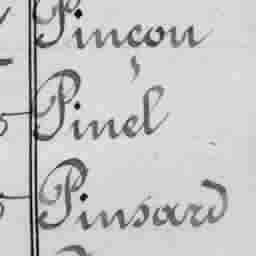 Pinçon
Pinel
Pinsard